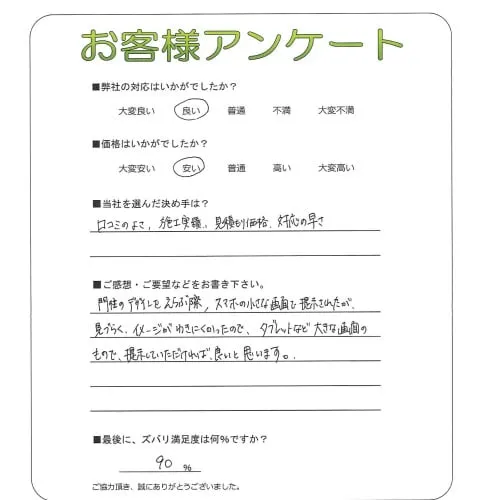 お客様アンケート
■弊社の対応はいかがでしたか？
大変良い 良い 普通 不満 大変不満
■価格はいかがでしたか？
大変安い 安い 普通 高い 大変高い
■当社を選んだ決め手は？
口コミのよさ、施工実績、見積もり価格、対応の早さ
■ご感想・ご要望などをお書き下さい。
門柱のデザインをえらぶ際、スマホの小さな画面で提示されたが、
見づらく、イメージがわきにくかったので、タブレットなど大きな画面の
もので、提示していただければ、良いと思います。
■最後に、ズバリ満足度は何％ですか？
90 ％
ご協力頂き、誠にありがとうございました。